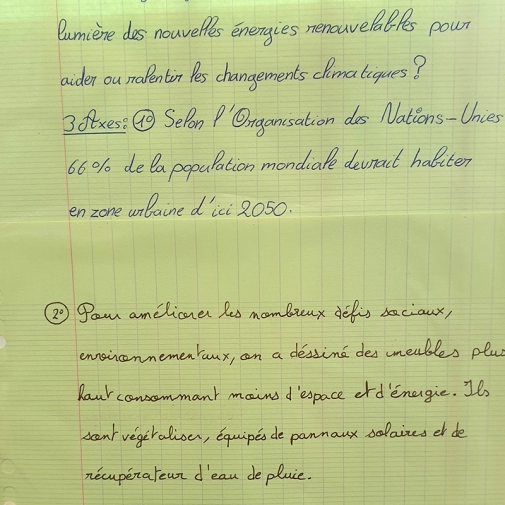 lumière des nouvelles énergies renouvelables pour
aider ou ralentir les changements climatiques ?
3 Axes : 1° Selon l'Organisation des Nations-Unies
66 % de la population mondiale devrait habiter
en zone urbaine d'ici 2050.
2° Pour améliorer les nombreux défis sociaux,
environnementaux, on a déssiné des meubles plus
haut consommant moins d'espace et d'énergie. Ils
sont végétaliser, équipés de pannaux solaires et de
récupérateur d'eau de pluie.